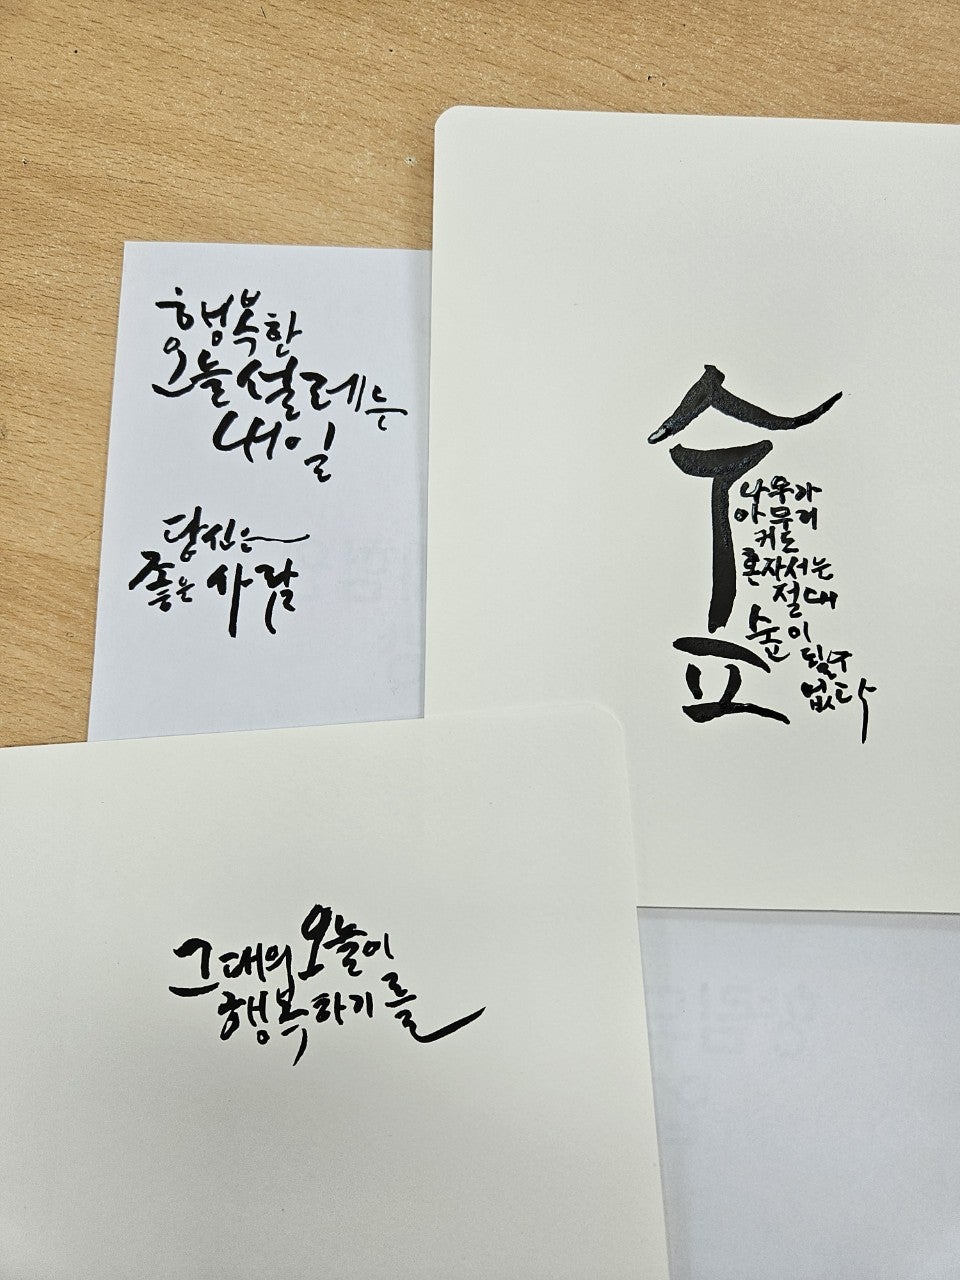 행복한
오늘 설레는
내일
당신은
좋은 사람
숲
나무가
아무리
커도
혼자서는
절대
숲이
될 수
없다
그대의 오늘이
행복하기를